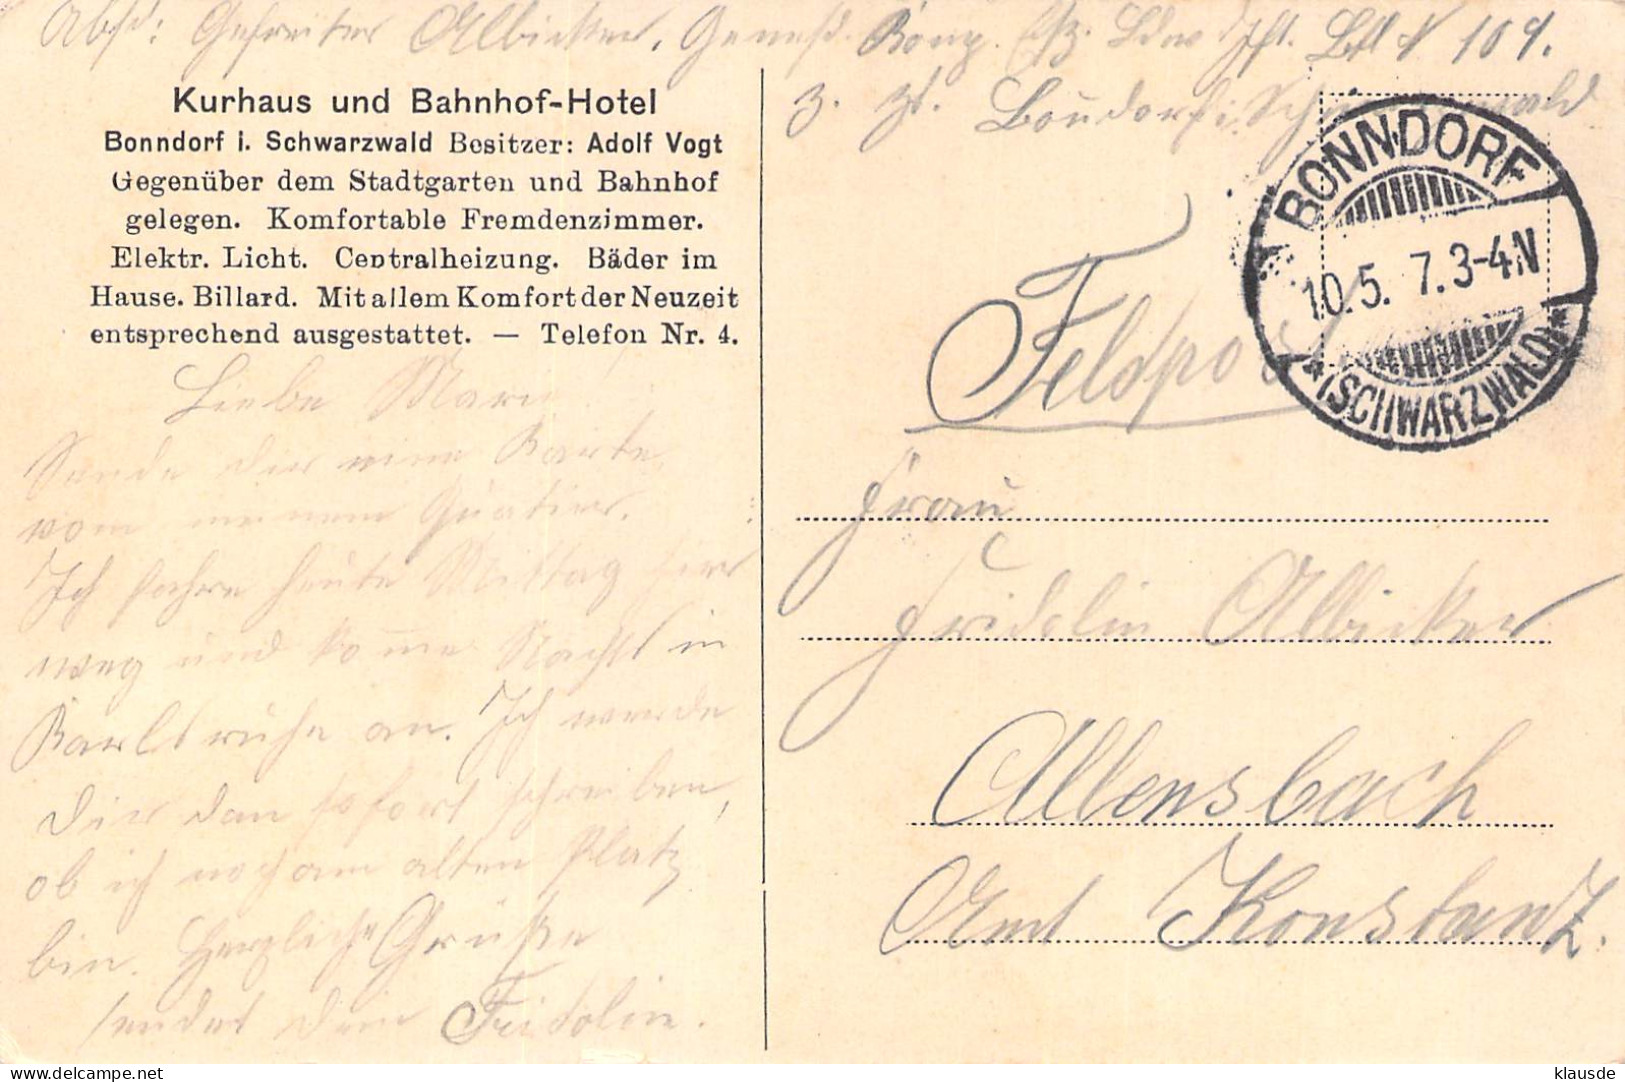 Abs: Gefreiter Albicker, Genes. Komp. Ers. Ldw Inft. Batl N 109.
z. Zt. Bonndorf i. Schwarzwald
Kurhaus und Bahnhof-Hotel
Bonndorf i. Schwarzwald Besitzer: Adolf Vogt
Gegenüber dem Stadtgarten und Bahnhof
gelegen. Komfortable Fremdenzimmer.
Elektr. Licht. Centralheizung. Bäder im
Hause. Billard. Mit allem Komfort der Neuzeit
entsprechend ausgestattet. — Telefon Nr. 4.
Liebe Marie!
Sende dir eine Karte
vom meinem Quatier.
Ich fahre heute Mittag hier
weg und komme Nachts in
Karlsruhe an. Ich werde
Dir dan sofort schreiben,
ob ich noch am alten Platz
bin. Herzliche Grüße
sendet dein Fridolin.
BONNDORF
10.5. 7.3-4N
(SCHWARZWALD)
Feldpost
Frau
Fridolin Albicker
Allensbach
Amt Konstanz.
klausde
delcampe.net